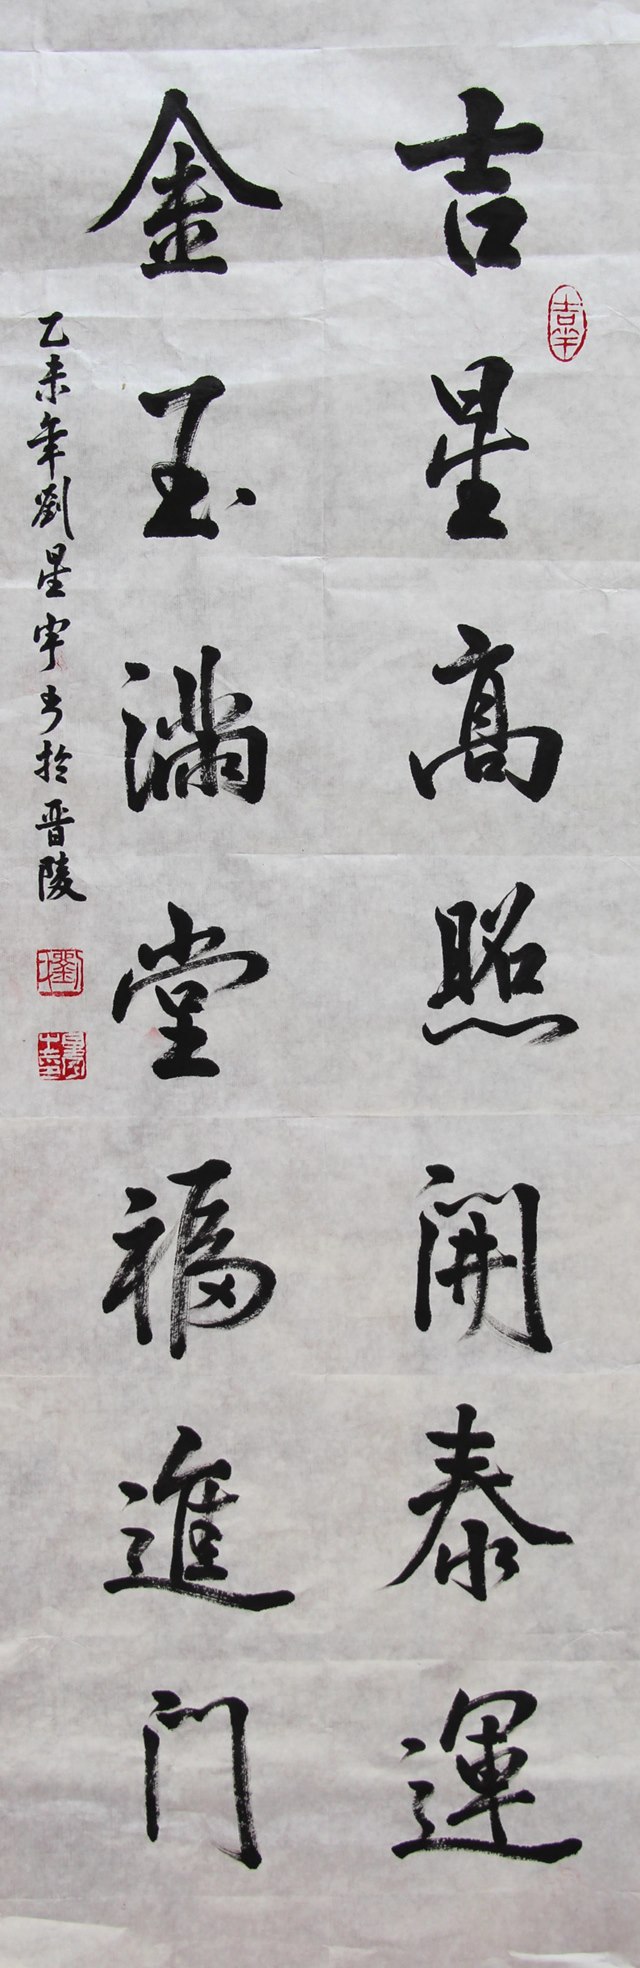 吉星高照開泰運
金玉滿堂福進门
乙未年劉星宇书於晋陵
吉羊